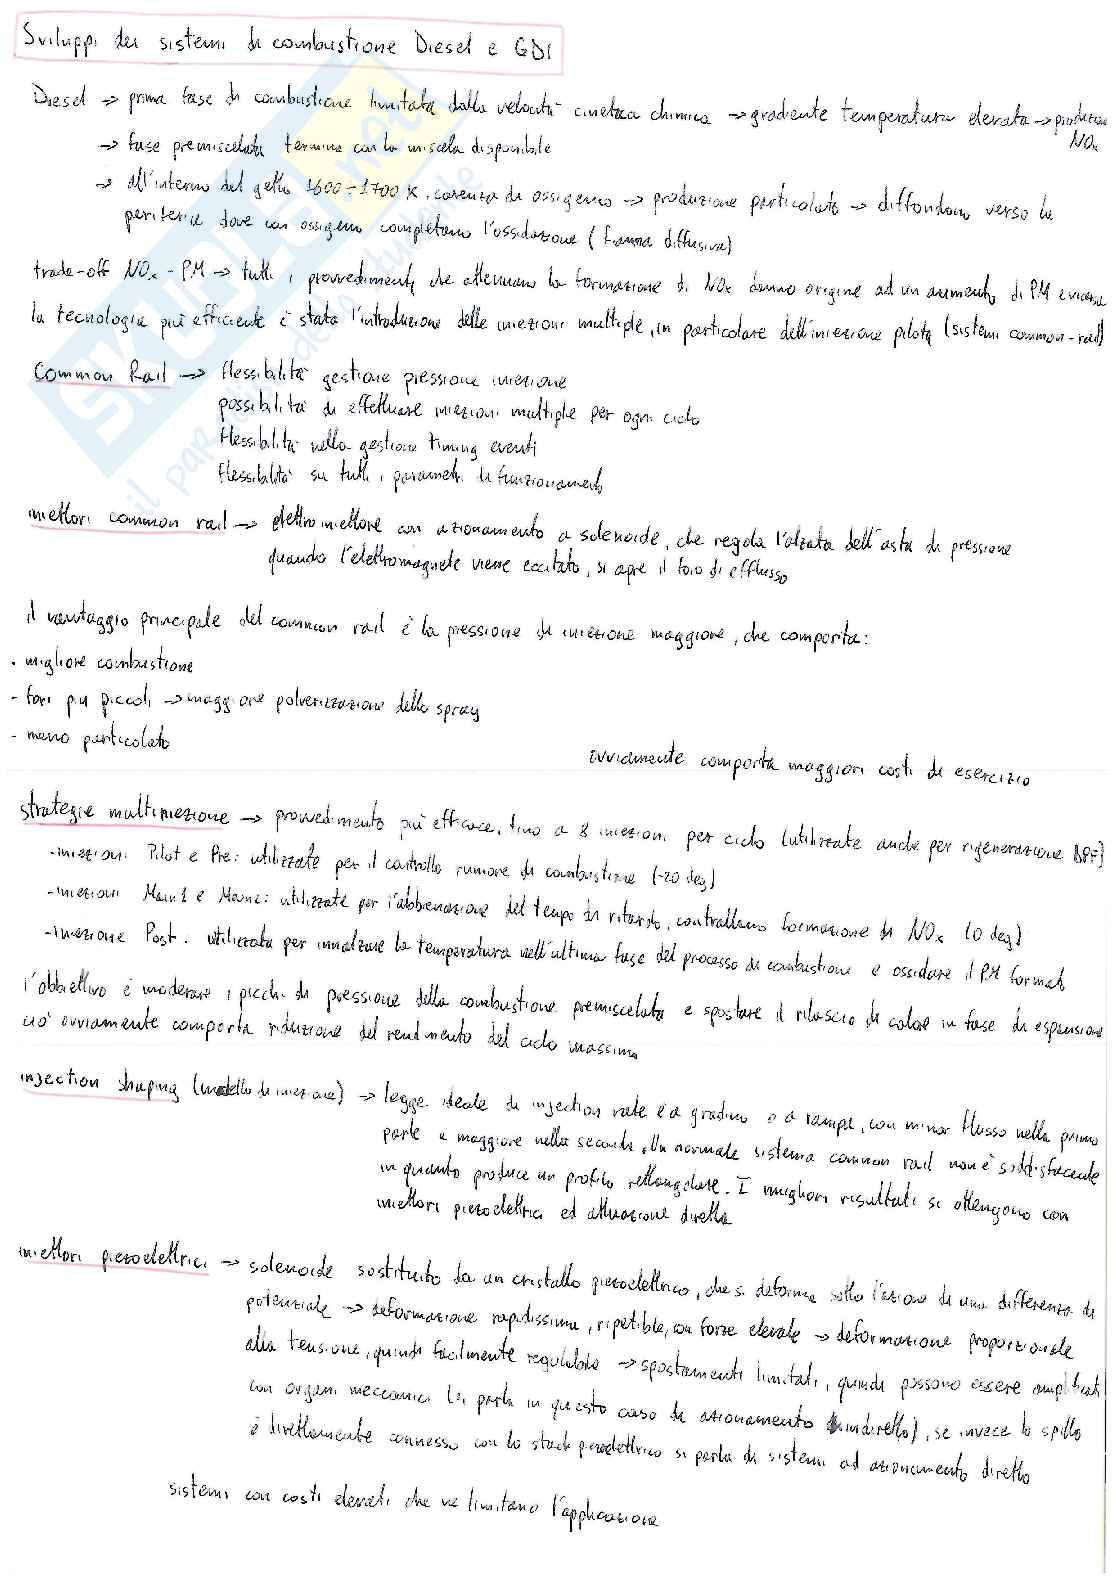 Sviluppi dei sistemi di combustione Diesel e GDI
Diesel → prima fase di combustione limitata dalla velocità cinetica chimica → gradiente temperatura elevata → produzione
NOx
→ fase premiscelata termina con la miscela disponibile
→ all'interno del getto 1600÷1700 K, carenza di ossigeno → produzione particolato → diffondono verso la
periferia dove con ossigeno completano l'ossidazione (fiamma diffusiva)
trade-off NOx - PM → tutti i provvedimenti che attenuano la formazione di NOx danno origine ad un aumento di PM e viceversa
la tecnologia più efficiente è stata l'introduzione delle iniezioni multiple, in particolare dell'iniezione pilota (sistemi common-rail)
Common Rail → flessibilità gestione pressione iniezione
possibilità di effettuare iniezioni multiple per ogni ciclo
flessibilità nella gestione timing eventi
flessibilità su tutti i parametri di funzionamento
iniettori common rail → elettroiniettore con azionamento a solenoide, che regola l'alzata dell'asta di pressione
quando l'elettromagnete viene eccitato, si apre il foro di efflusso
il vantaggio principale del common rail è la pressione di iniezione maggiore, che comporta:
- migliore combustione
- fori più piccoli → maggiore polverizzazione dello spray
- meno particolato
ovviamente comporta maggiori costi di esercizio
strategie multiiniezione → provvedimento più efficace, fino a 8 iniezioni per ciclo (utilizzate anche per rigenerazione DPF)
- iniezioni Pilot e Pre: utilizzate per il controllo rumore di combustione (-20 deg)
- iniezioni Main1 e Main2: utilizzate per l'abbreviazione del tempo di ritardo, controllano formazione di NOx (0 deg)
- iniezione Post: utilizzata per innalzare la temperatura nell'ultima fase del processo di combustione e ossidare il PM formato
l'obbiettivo è moderare i picchi di pressione della combustione premiscelata e spostare il rilascio di calore in fase di espansione
ciò ovviamente comporta riduzione del rendimento del ciclo massimo
injection shaping (modello di iniezione) → legge ideale di injection rate è a gradino o a rampa, con minor flusso nella prima
parte e maggiore nella seconda. Un normale sistema common rail non è soddisfacente
in quanto produce un profilo rettangolare. I migliori risultati si ottengono con
iniettori piezoelettrici ed attuazione diretta
iniettori piezoelettrici → solenoide sostituito da un cristallo piezoelettrico, che si deforma sotto l'azione di una differenza di
potenziale → deformazione rapidissima, ripetibile, con forze elevate → deformazione proporzionale
alla tensione, quindi facilmente regolabile → spostamenti limitati, quindi possono essere amplificati
con organi meccanici (si parla in questo caso di azionamento indiretto), se invece lo spillo
è direttamente connesso con lo stack piezoelettrico si parla di sistemi ad azionamento diretto
sistemi con costi elevati che ne limitano l'applicazione